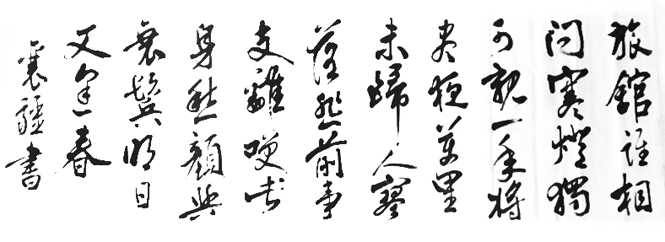 旅館誰相
问寒燈獨
可親一年将
尽夜萬里
未歸人寥
落悲前事
支離笑此
身愁顏與
衰鬓明日
又逢春
襄疆書